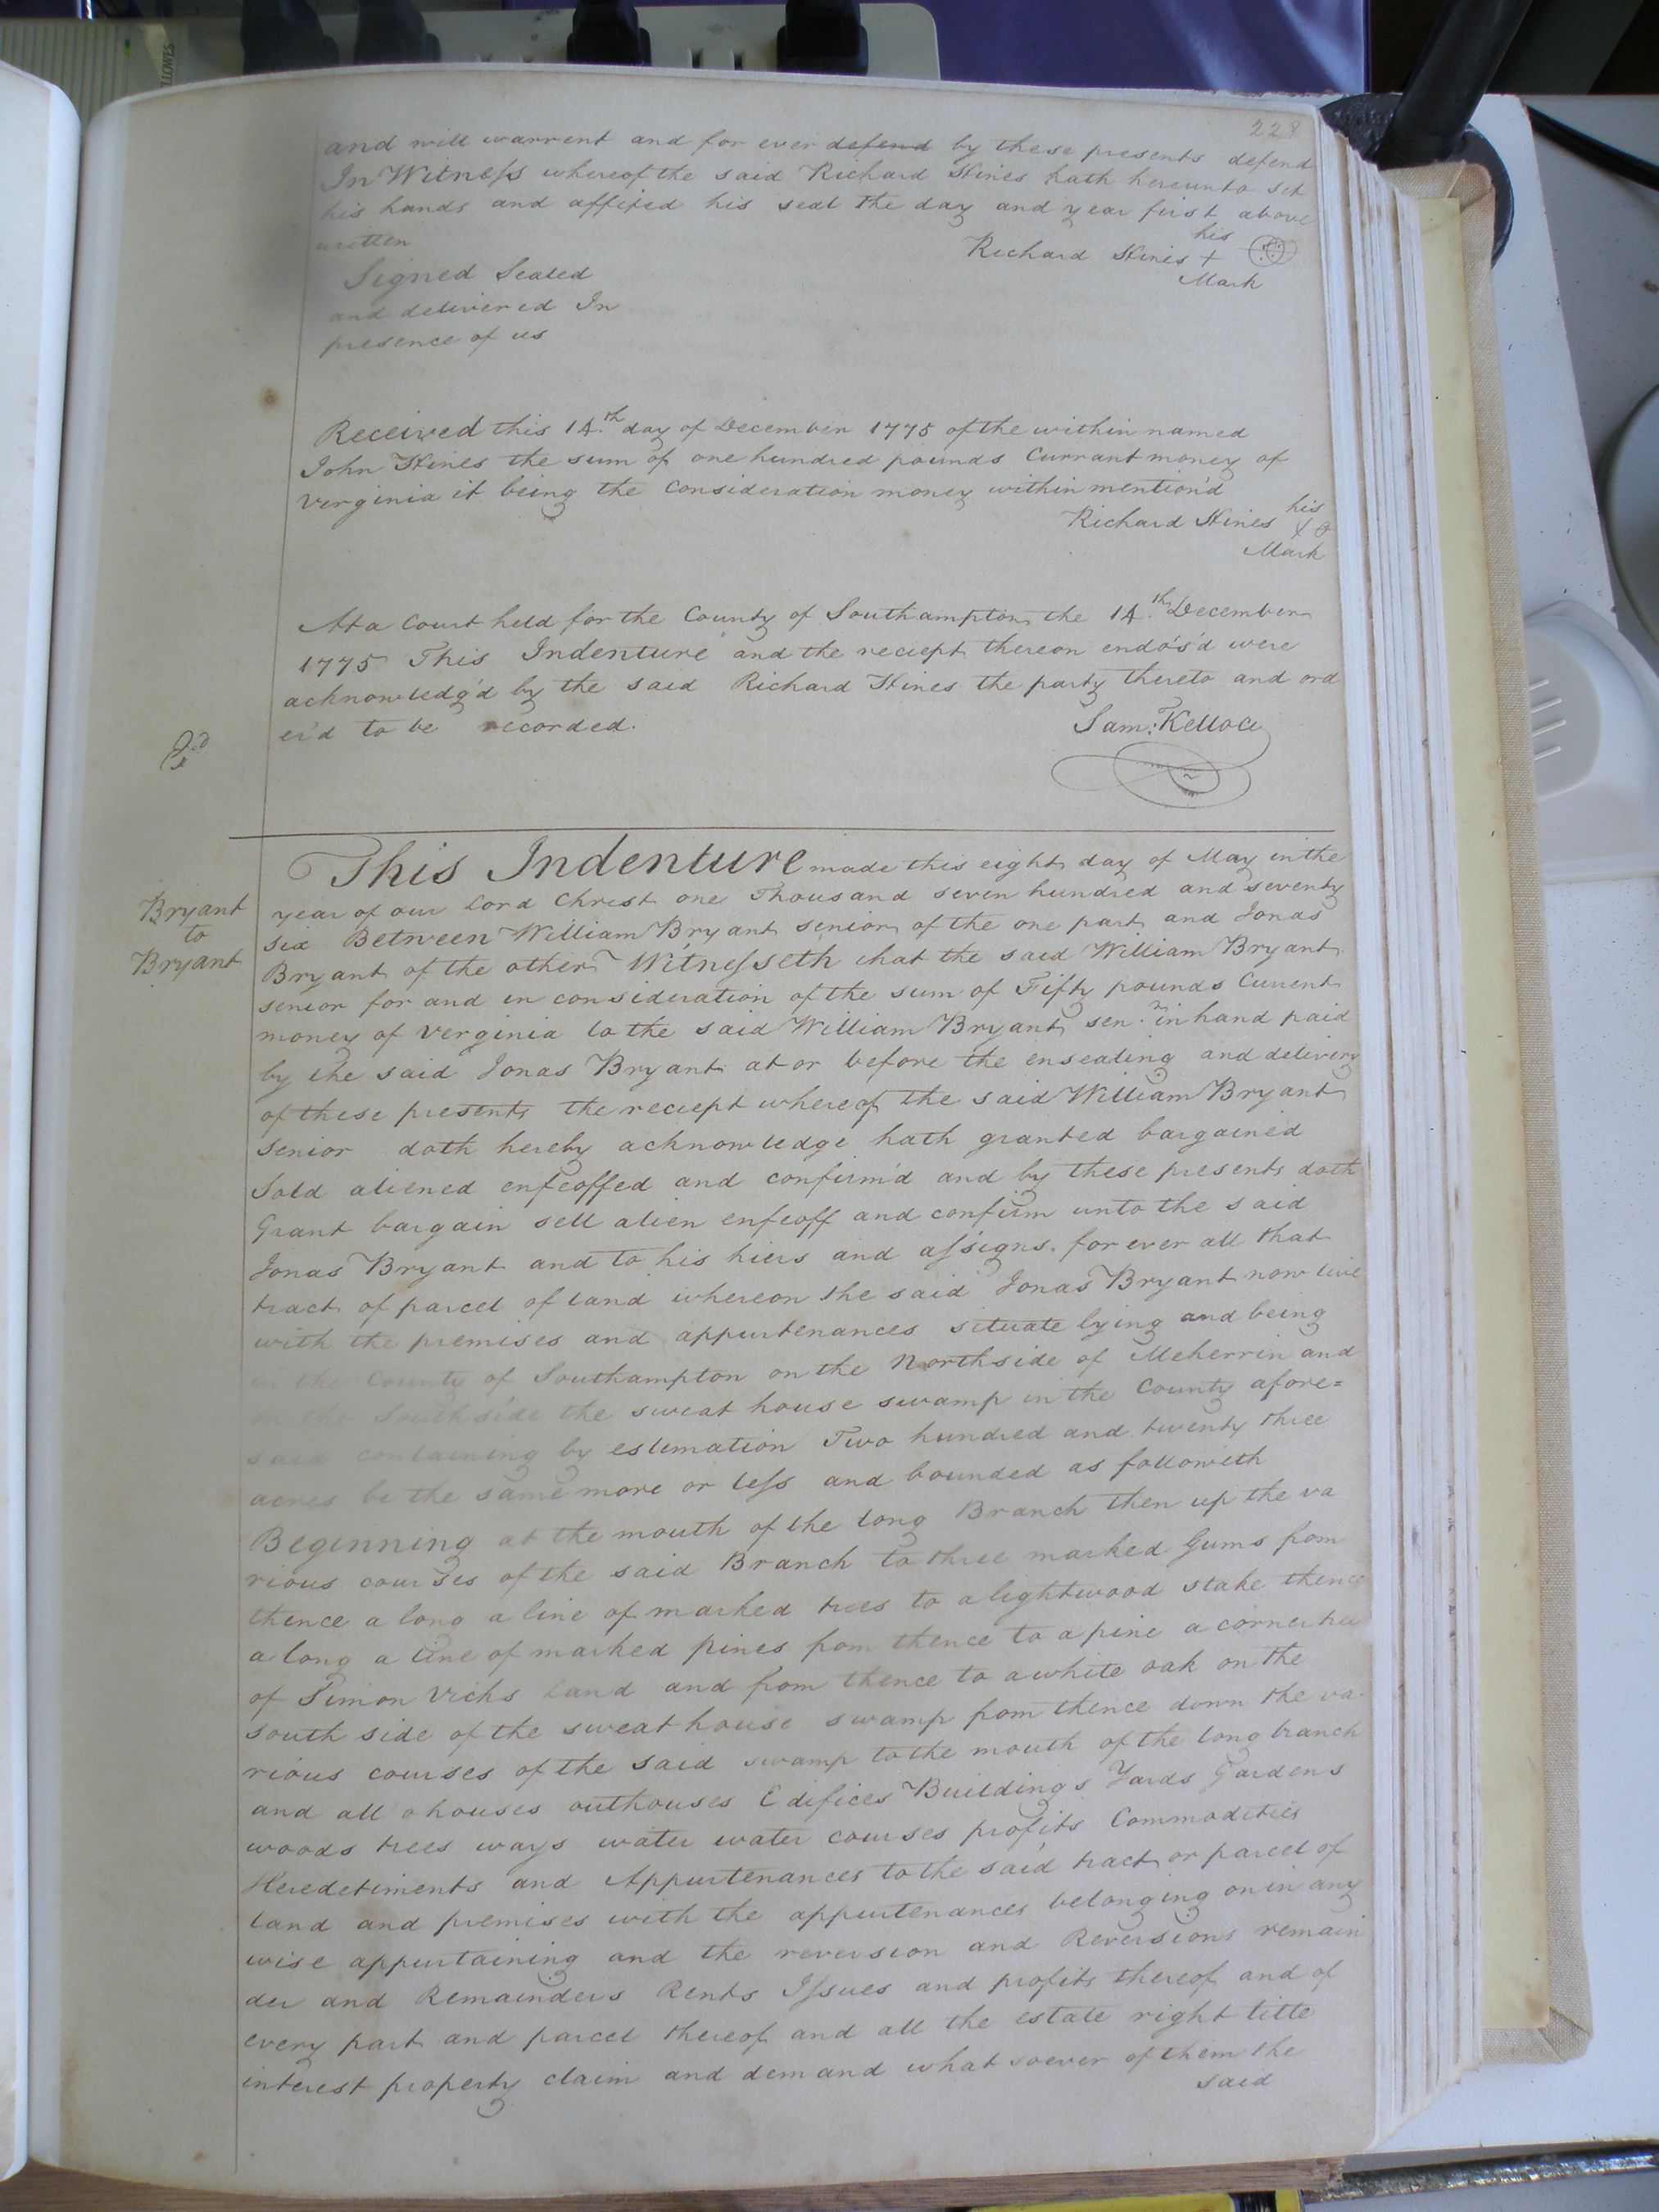 228
and will warrent and for ever defend by these presents defend
In Witness whereof the said Richard Hines hath hereunto set
his hands and affixed his seal the day and year first above
written
his
Richard Hines +
Mark
Signed Sealed
and delivered In
presence of us
Received this 14th day of December 1775 of the within named
John Hines the sum of one hundred pounds Currant money of
Verginia it being the Consideration money within mention'd
his
Richard Hines
Mark
At a Court held for the County of Southampton the 14th December
1775 This Indenture and the reciept thereon endo's'd were
acknowledg'd by the said Richard Hines the party thereto and ord
er'd to be recorded.
Sam: Kelloce
This Indenture made this eight day of May in the
Bryant
to
Bryant
year of our Lord Christ one Thousand seven hundred and seventy
six Between William Bryant senior of the one part and Jonas
Bryant of the other Witnesseth that the said William Bryant
senior for and in consideration of the sum of Fifty pounds Current
money of Verginia to the said William Bryant senr. in hand paid
by the said Jonas Bryant at or before the ensealing and delivery
of these presents the reciept whereof the said William Bryant
senior doth hereby acknowledge hath granted bargained
Sold aliened enfeoffed and confirm'd and by these presents doth
Grant bargain sell alien enfeoff and confirm unto the said
Jonas Bryant and to his hiers and assigns. for ever all that
tract of parcel of land whereon the said Jonas Bryant now live
with the premises and appurtenances situate lying and being
in the County of Southampton on the Northside of Meherrin and
on the Southside the sweat house swamp in the County afore=
said containing by estimation Two hundred and twenty three
acres be the same more or less and bounded as followeth
Beginning at the mouth of the long Branch then up the va
rious courses of the said Branch to three marked Gums from
thence a long a line of marked trees to a lightwood stake thence
a long a line of marked pines from thence to a pine a corner tree
of Simon Vicks Land and from thence to a white oak on the
south side of the sweat house swamp from thence down the va
rious courses of the said swamp to the mouth of the long branch
and all ohouses outhouses Edifices Buildings Yards Gardens
woods trees ways water water courses profits Commodities
Heredetiments and Appurtenances to the said tract or parcel of
land and premises with the appurtenances belonging or in any
wise appurtaining and the reversion and Reversions remain
der and Remainders Rents Issues and profits thereof and of
every part and parcel thereof and all the estate right title
interest property claim and demand whatsoever of them the
said